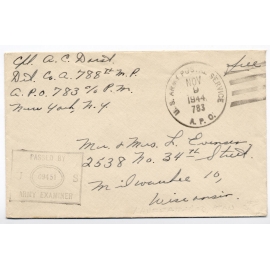 Cpl. A. C. Dorst
Det. Co. A. 788th M.P.
A.P.O. 783 c/o P.M.
New York, N.Y.
Free
U.S. ARMY POSTAL SERVICE
NOV
9
1944
783
A.P.O.
Mr. & Mrs. L. Evensen
2538 No. 34th Street
Milwaukee 10,
Wisconsin
PASSED BY
ARMY EXAMINER